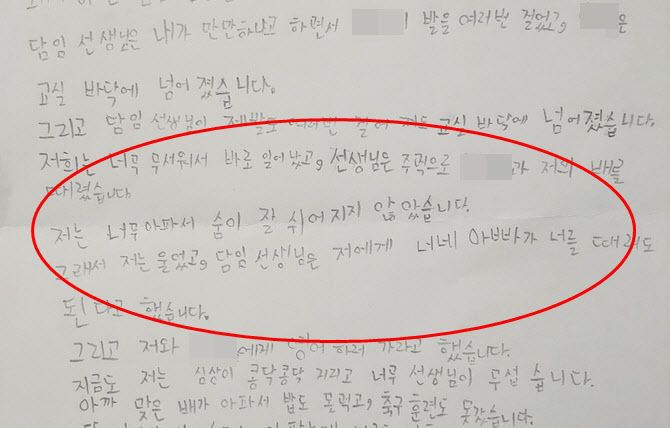 담임 선생님은 내가 만만하냐고 하면서 발을 여러번 걸었고, 은
교실 바닥에 넘어 졌습니다.
그리고 담임 선생님이 제발도 여러번 걸어 저도 교실 바닥에 넘어졌습니다.
저희는 너무 무서워서 바로 일어났고, 선생님은 주먹으로 과 저의 배를
때렸습니다
저는 너무아파서 숨이 잘 쉬어지지 않았습니다.
그래서 저는 울었고, 담임 선생님은 저에게 너네 아빠가 너를 때려도
된다고 했습니다.
그리고 저와 에게 영어 하러 가라고 했습니다.
지금도 저는 심상이 콩닥콩닥 거리고 너무 선생님이 무섭습니다.
아까 맞은 배가 아파서 밥도 못먹고, 축구 훈련도 못갔습니다.